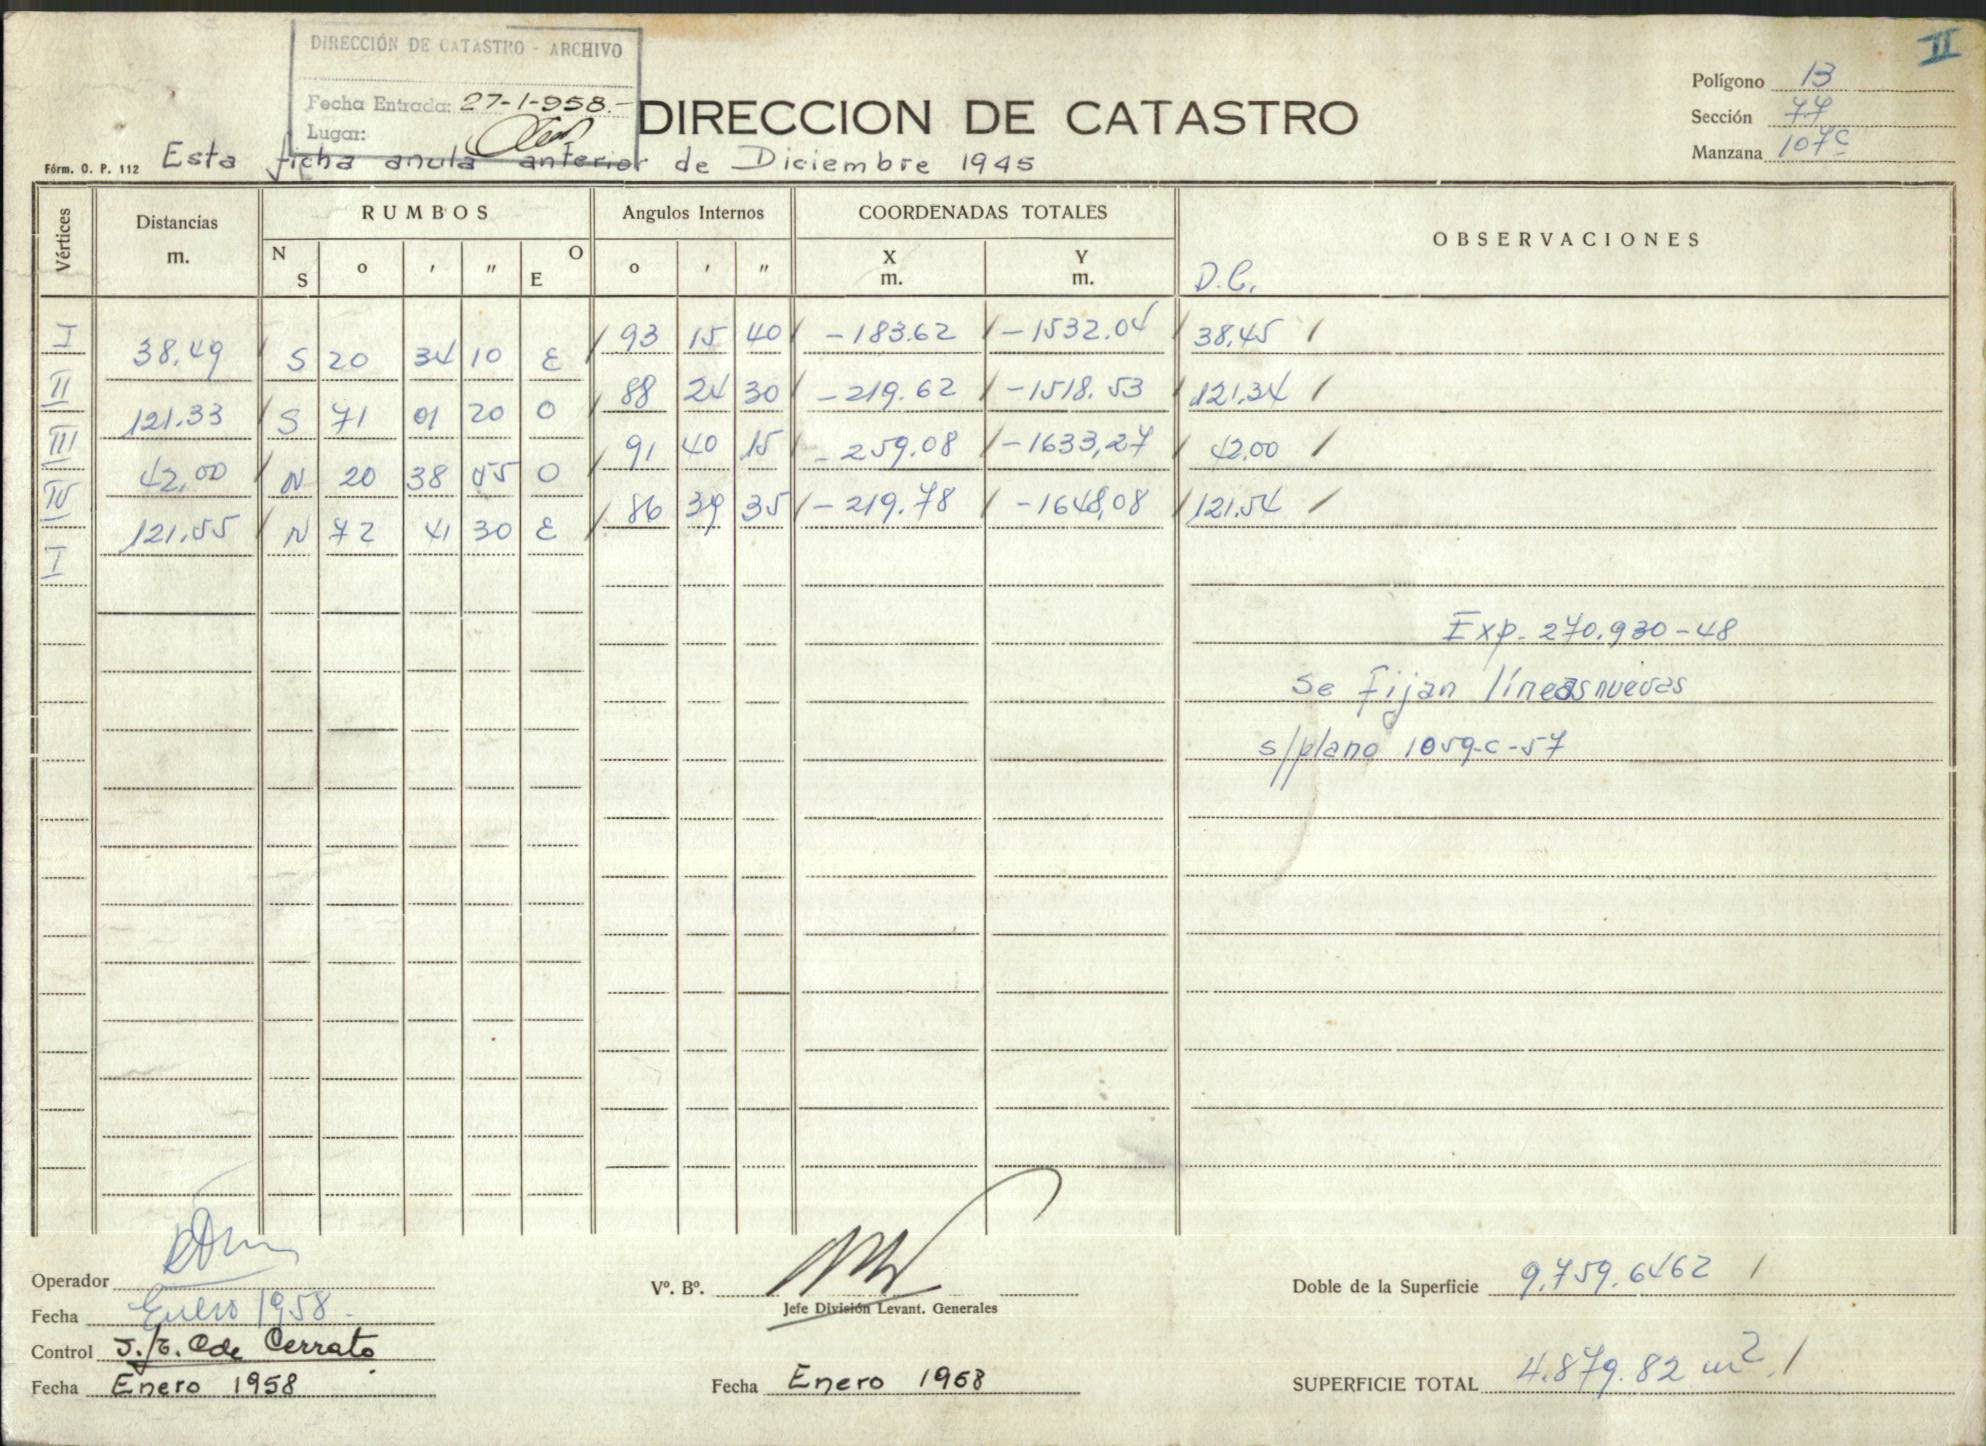 II
DIRECCIÓN DE CATASTRO - ARCHIVO
Fecha Entrada: 27-1-958.-
Lugar:
DIRECCION DE CATASTRO
Polígono 13
Sección 77
Manzana 107c
Fórm. O. P. 112 Esta ficha anula anterior de Diciembre 1945
Vértices Distancias m. RUMBOS Angulos Internos COORDENADAS TOTALES OBSERVACIONES
N S o ' " O E o ' " X m. Y m. D.C.
I 93 15 40 -183.62 -1532.04 38,45 /
38,49 S 20 34 10 E
II 88 24 30 -219.62 -1518.53 121,34 /
121.33 S 71 01 20 O
III 91 40 15 -259.08 -1633,27 42,00 /
42,00 N 20 38 05 O
IV 86 39 35 -219.78 -1648,08 121.54 /
121.55 N 72 41 30 E
I
Exp. 270.930-48
Se fijan líneas nuevas
s/plano 1059-C-57
Operador
Fecha Enero 1958.
Control Cerrato
Fecha Enero 1958
Vº. Bº.
Jefe División Levant. Generales
Fecha Enero 1958
Doble de la Superficie 9.759.6462 /
SUPERFICIE TOTAL 4.879.82 m2 /